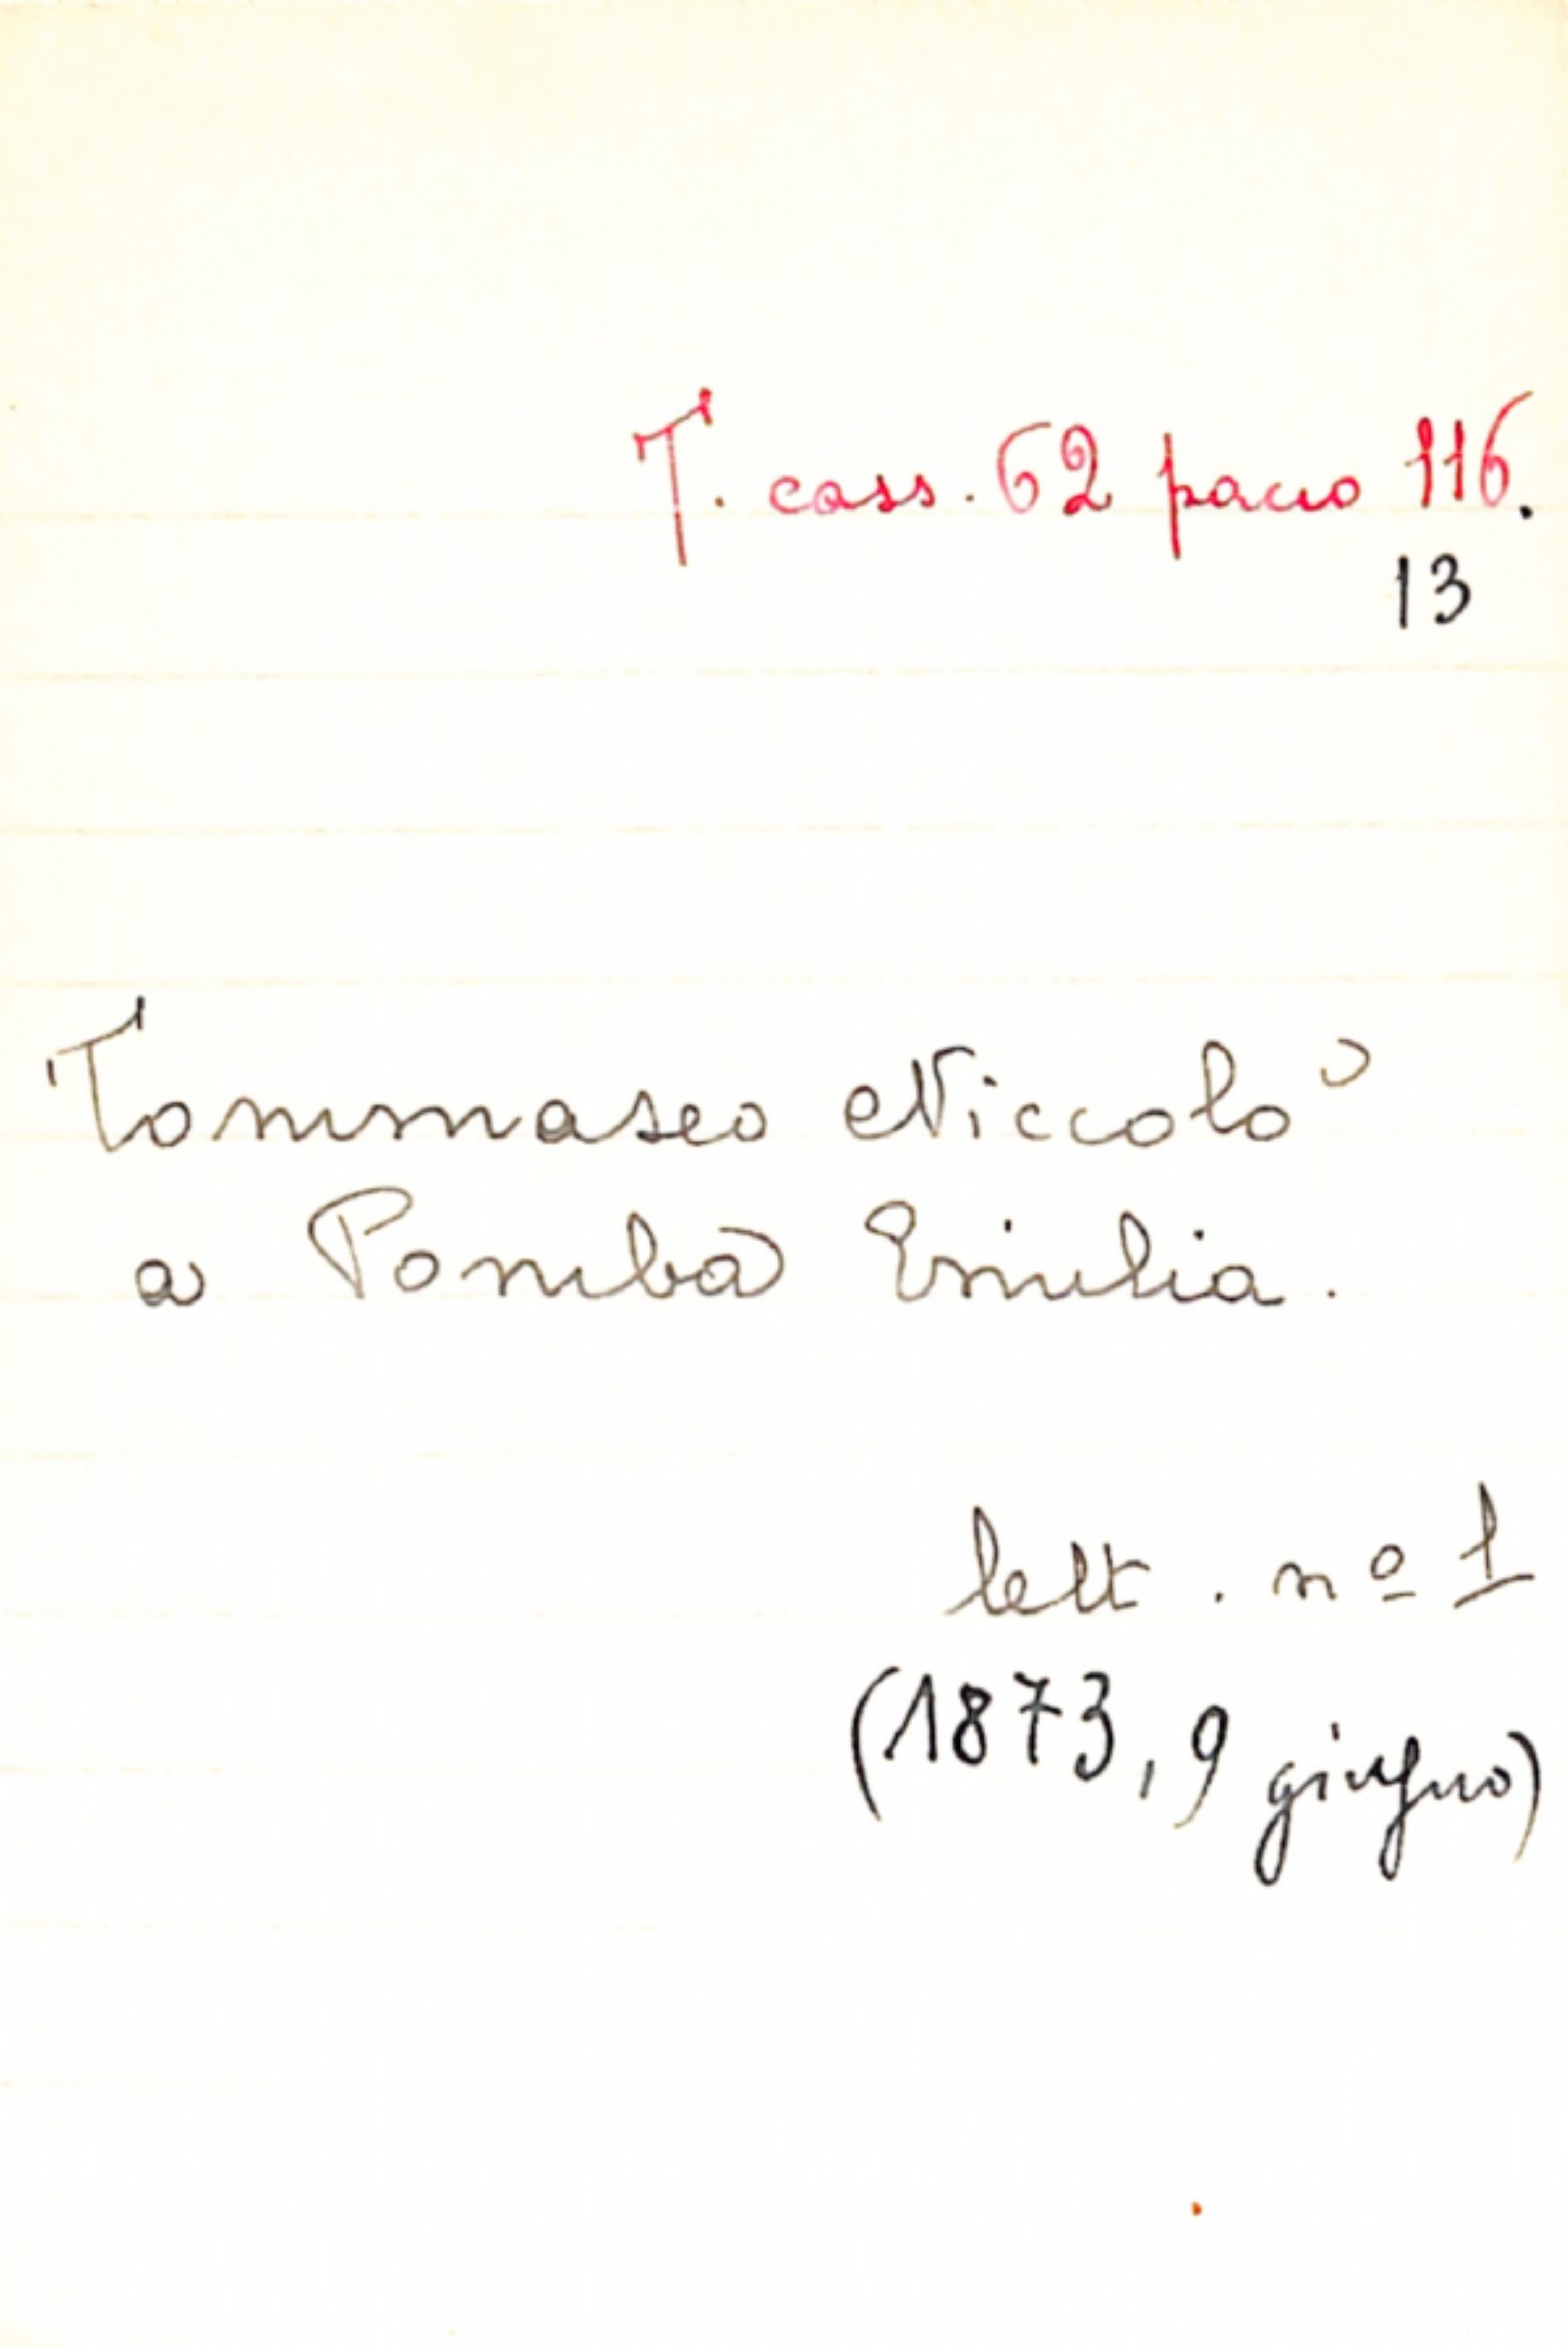 T. cass. 62 pacco 116.
13
Tommaseo Niccolò
a Pomba Emilia.
lett. nº 1
(1873, 9 giugno)